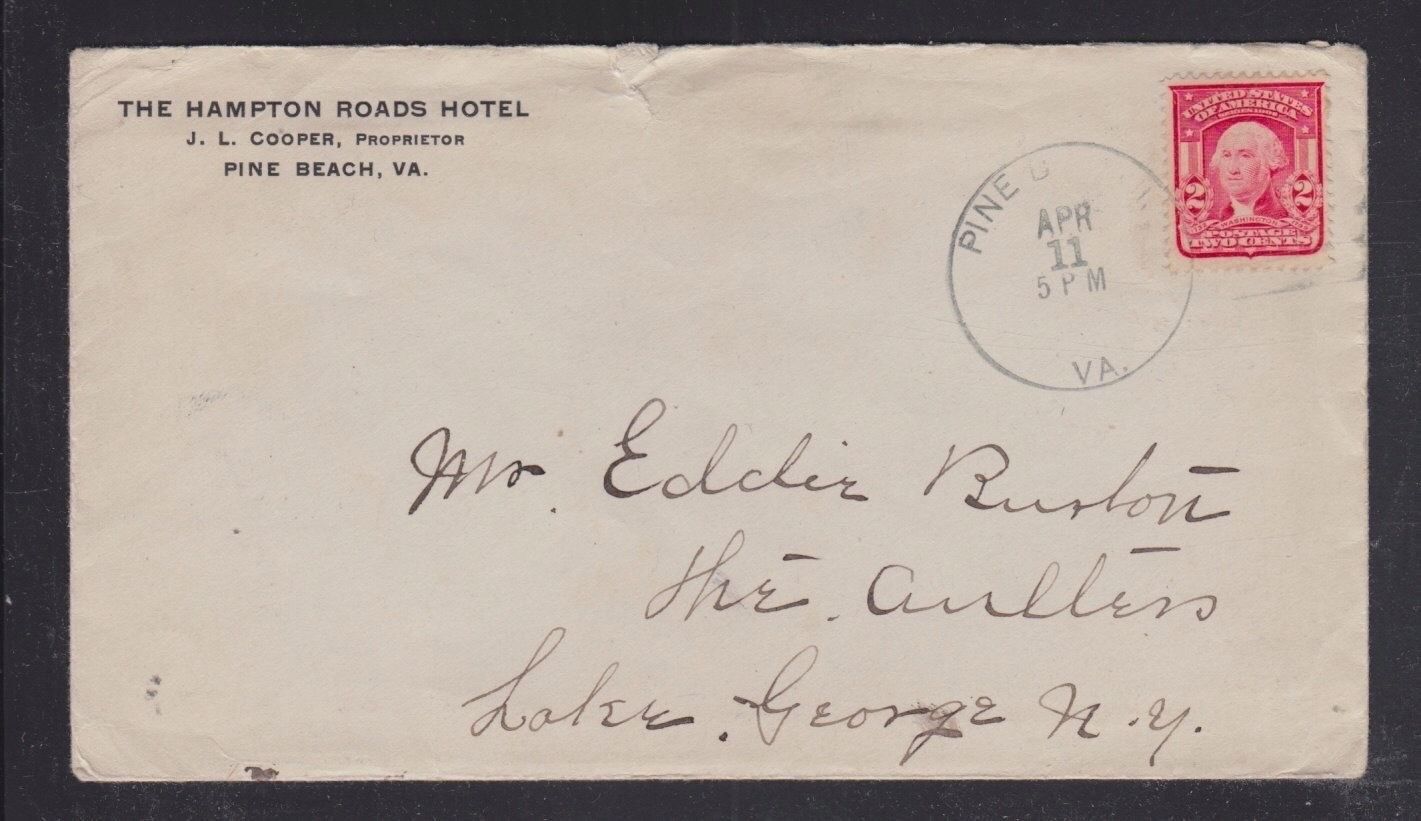 THE HAMPTON ROADS HOTEL
J. L. COOPER, PROPRIETOR
PINE BEACH, VA.
UNITED STATES
OF AMERICA
SERIES 1902
2 2
WASHINGTON
POSTAGE
TWO CENTS
PINE
APR
11
5 PM
VA.
Mr. Eddie Burton
The
Lake George N.Y.